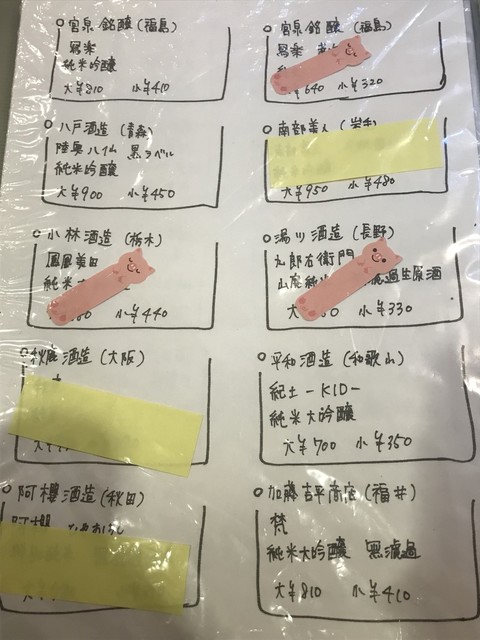 宮泉銘醸(福島)
冩楽
純米吟醸
大¥810 小¥410
宮泉銘醸(福島)
冩楽
¥640 小¥320
八戸酒造(青森)
陸奥八仙 黒ラベル
純米吟醸
大¥900 小¥450
南部美人(岩手)
大¥950 小¥480
小林酒造(栃木)
鳳凰美田
純米
小¥440
湯川酒造(長野)
九郎右衛門
山廃純米 濾過生原酒
大 小¥330
秋鹿酒造(大阪)
平和酒造(和歌山)
紀土-KID-
純米大吟醸
大¥700 小¥350
阿櫻酒造(秋田)
加藤吉平商店(福井)
梵
純米大吟醸 無濾過
大¥810 小¥410